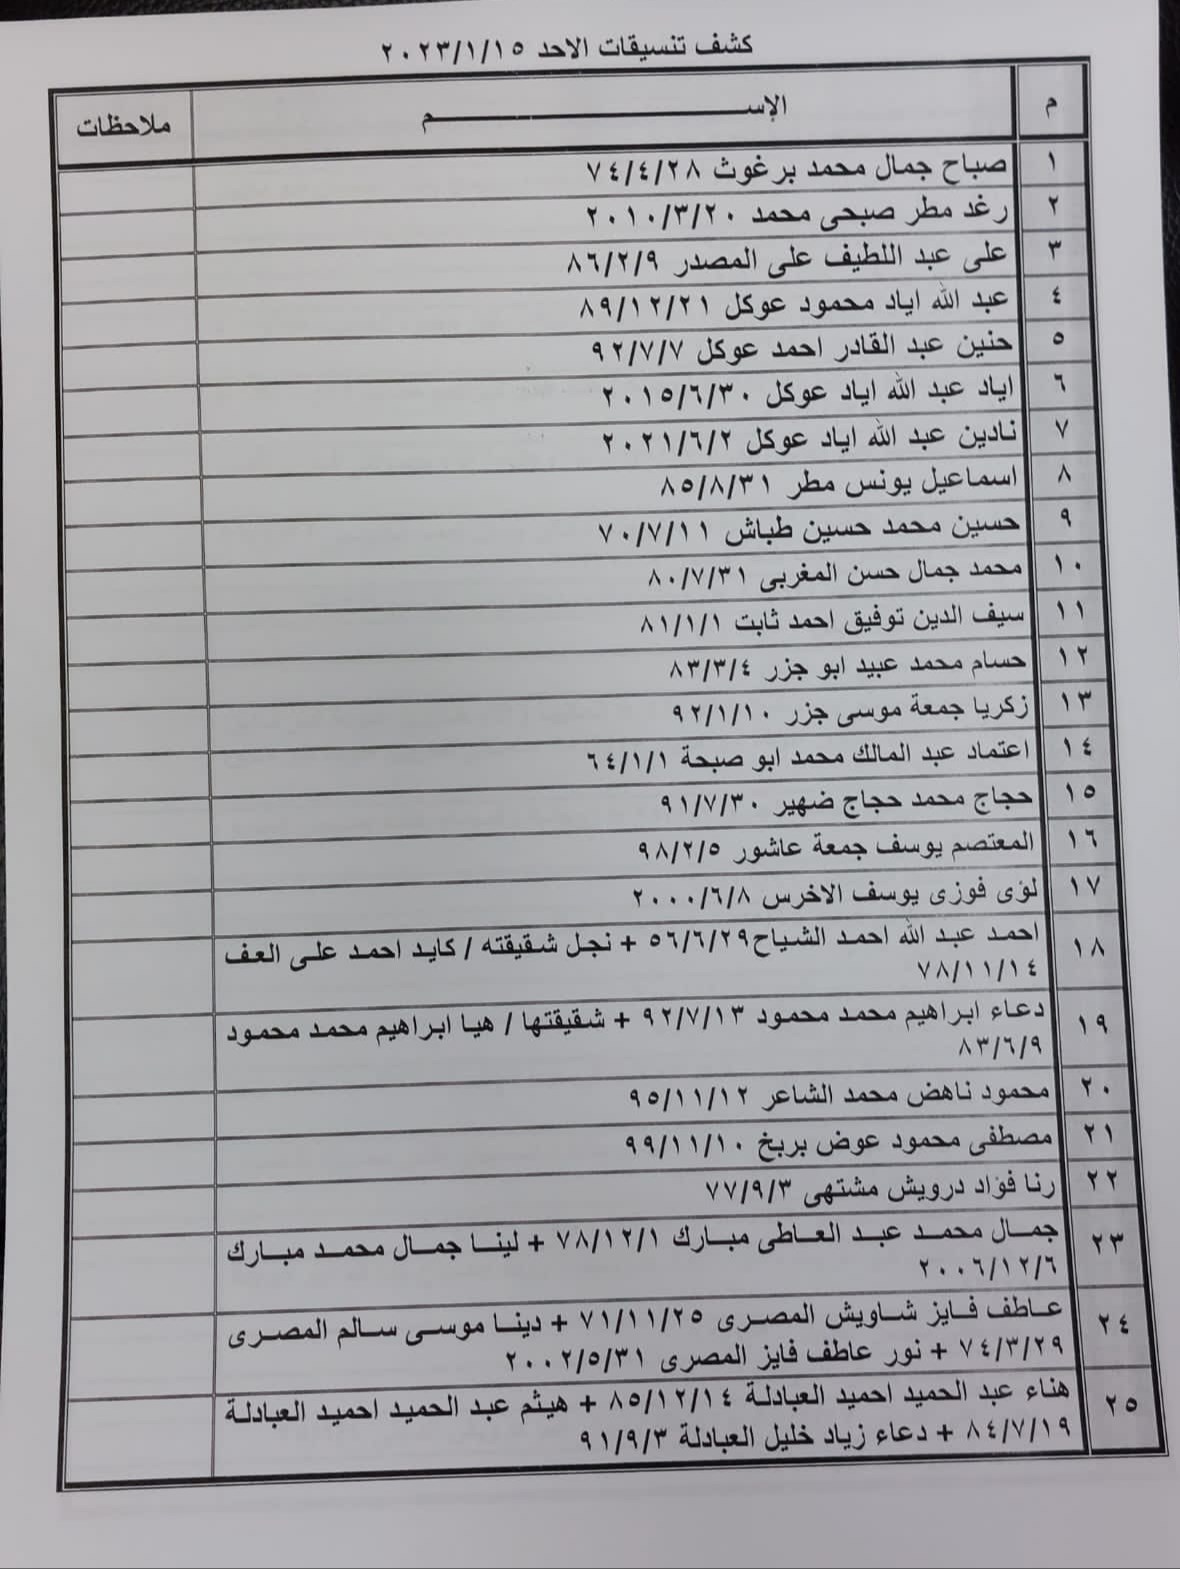 كشف تنسيقات الاحد ٢٠٢٣/١/١٥
م الإســـــم ملاحظات
١ صباح جمال محمد برغوث ٧٤/٤/٢٨
٢ رغد مطر صبحى محمد ٢٠١٠/٣/٢٠
٣ على عبد اللطيف على المصدر ٨٦/٢/٩
٤ عبد الله اياد محمود عوكل ٨٩/١٢/٢١
٥ حنين عبد القادر احمد عوكل ٩٢/٧/٧
٦ اياد عبد الله اياد عوكل ٢٠١٥/٦/٣٠
٧ نادين عبد الله اياد عوكل ٢٠٢١/٦/٢
٨ اسماعيل يونس مطر ٨٥/٨/٣١
٩ حسين محمد حسين طباش ٧٠/٧/١١
١٠ محمد جمال حسن المغربى ٨٠/٧/٣١
١١ سيف الدين توفيق احمد ثابت ٨١/١/١
١٢ حسام محمد عبيد ابو جزر ٨٣/٣/٤
١٣ زكريا جمعة موسى جزر ٩٢/١/١٠
١٤ اعتماد عبد المالك محمد ابو صبحة ٦٤/١/١
١٥ حجاج محمد حجاج ضهير ٩١/٧/٣٠
١٦ المعتصم يوسف جمعة عاشور ٩٨/٢/٥
١٧ لؤى فوزى يوسف الاخرس ٢٠٠٠/٦/٨
١٨ احمد عبد الله احمد الشياح٥٦/٦/٢٩ + نجل شقيقته / كايد احمد على العف
٧٨/١١/١٤
١٩ دعاء ابراهيم محمد محمود ٩٢/٧/١٣ + شقيقتها / هيا ابراهيم محمد محمود
٨٣/٦/٩
٢٠ محمود ناهض محمد الشاعر ٩٥/١١/١٢
٢١ مصطفى محمود عوض بربخ ٩٩/١١/١٠
٢٢ رنا فؤاد درويش مشتهى ٧٧/٩/٣
٢٣ جمال محمد عبد العاطى مبارك ٧٨/١٢/١ + لينا جمال محمد مبارك
٢٠٠٦/١٢/٦
٢٤ عاطف فايز شاويش المصرى ٧١/١١/٢٥ + دينا موسى سالم المصرى
٧٤/٣/٢٩ + نور عاطف فايز المصرى ٢٠٠٢/٥/٣١
٢٥ هناء عبد الحميد احميد العبادلة ٨٥/١٢/١٤ + هيثم عبد الحميد احميد العبادلة
٨٤/٧/١٩ + دعاء زياد خليل العبادلة ٩١/٩/٣